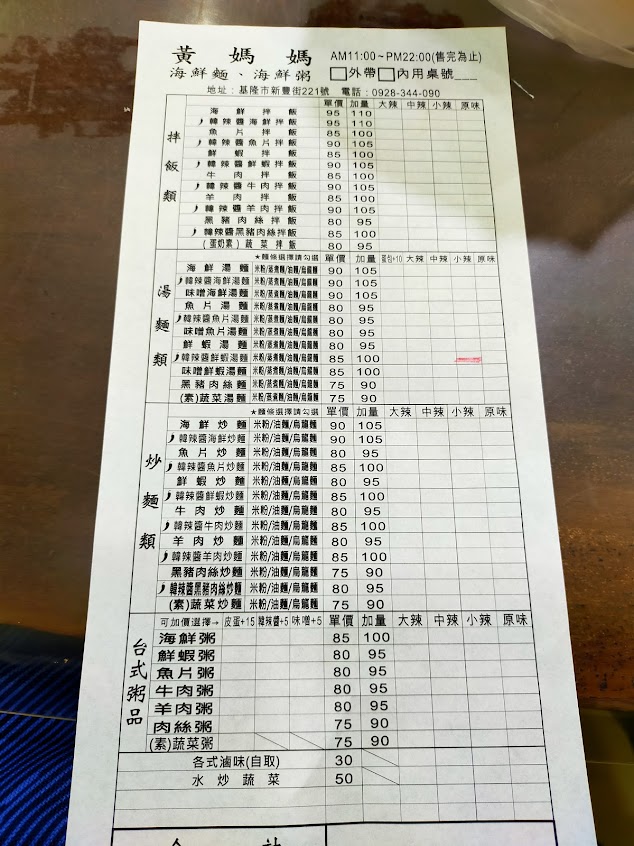 黃媽媽 AM11:00~PM22:00(售完為止)
海鮮麵、海鮮粥 □外帶□內用桌號___
地址：基隆市新豐街221號 電話：0928-344-090
拌飯類 單價 加量 大辣 中辣 小辣 原味
海鮮拌飯 95 110
韓辣醬海鮮拌飯 95 110
魚片拌飯 85 100
韓辣醬魚片拌飯 90 105
鮮蝦拌飯 85 100
韓辣醬鮮蝦拌飯 90 105
牛肉拌飯 85 100
韓辣醬牛肉拌飯 90 105
羊肉拌飯 85 100
韓辣醬羊肉拌飯 90 105
黑豬肉絲拌飯 80 95
韓辣醬黑豬肉絲拌飯 85 100
(蛋奶素)蔬菜拌飯 80 95
湯麵類 ★麵條選擇請勾選 單價 加量 蛋包+10 大辣 中辣 小辣 原味
海鮮湯麵 米粉/蒸煮麵/油麵/烏龍麵 90 105
韓辣醬海鮮湯麵 米粉/蒸煮麵/油麵/烏龍麵 90 105
味噌海鮮湯麵 米粉/蒸煮麵/油麵/烏龍麵 90 105
魚片湯麵 米粉/蒸煮麵/油麵/烏龍麵 80 95
韓辣醬魚片湯麵 米粉/蒸煮麵/油麵/烏龍麵 80 95
味噌魚片湯麵 米粉/蒸煮麵/油麵/烏龍麵 80 95
鮮蝦湯麵 米粉/蒸煮麵/油麵/烏龍麵 80 95
韓辣醬鮮蝦湯麵 米粉/蒸煮麵/油麵/烏龍麵 85 100
味噌鮮蝦湯麵 米粉/蒸煮麵/油麵/烏龍麵 85 100
黑豬肉絲麵 米粉/蒸煮麵/油麵/烏龍麵 75 90
(素)蔬菜湯麵 米粉/蒸煮麵/油麵/烏龍麵 75 90
炒麵類 ★麵條選擇請勾選 單價 加量 大辣 中辣 小辣 原味
海鮮炒麵 米粉/油麵/烏龍麵 90 105
韓辣醬海鮮炒麵 米粉/油麵/烏龍麵 90 105
魚片炒麵 米粉/油麵/烏龍麵 80 95
韓辣醬魚片炒麵 米粉/油麵/烏龍麵 85 100
鮮蝦炒麵 米粉/油麵/烏龍麵 80 95
韓辣醬鮮蝦炒麵 米粉/油麵/烏龍麵 85 100
牛肉炒麵 米粉/油麵/烏龍麵 80 95
韓辣醬牛肉炒麵 米粉/油麵/烏龍麵 85 100
羊肉炒麵 米粉/油麵/烏龍麵 80 95
韓辣醬羊肉炒麵 米粉/油麵/烏龍麵 85 100
黑豬肉絲炒麵 米粉/油麵/烏龍麵 75 90
韓辣醬黑豬肉絲炒麵 米粉/油麵/烏龍麵 80 95
(素)蔬菜炒麵 米粉/油麵/烏龍麵 75 90
台式粥品 可加價選擇→ 皮蛋+15 韓辣醬+5 味噌+5 單價 加量 大辣 中辣 小辣 原味
海鮮粥 85 100
鮮蝦粥 80 95
魚片粥 80 95
牛肉粥 80 95
羊肉粥 80 95
肉絲粥 75 90
(素)蔬菜粥 75 90
各式滷味(自取) 30
水炒蔬菜 50